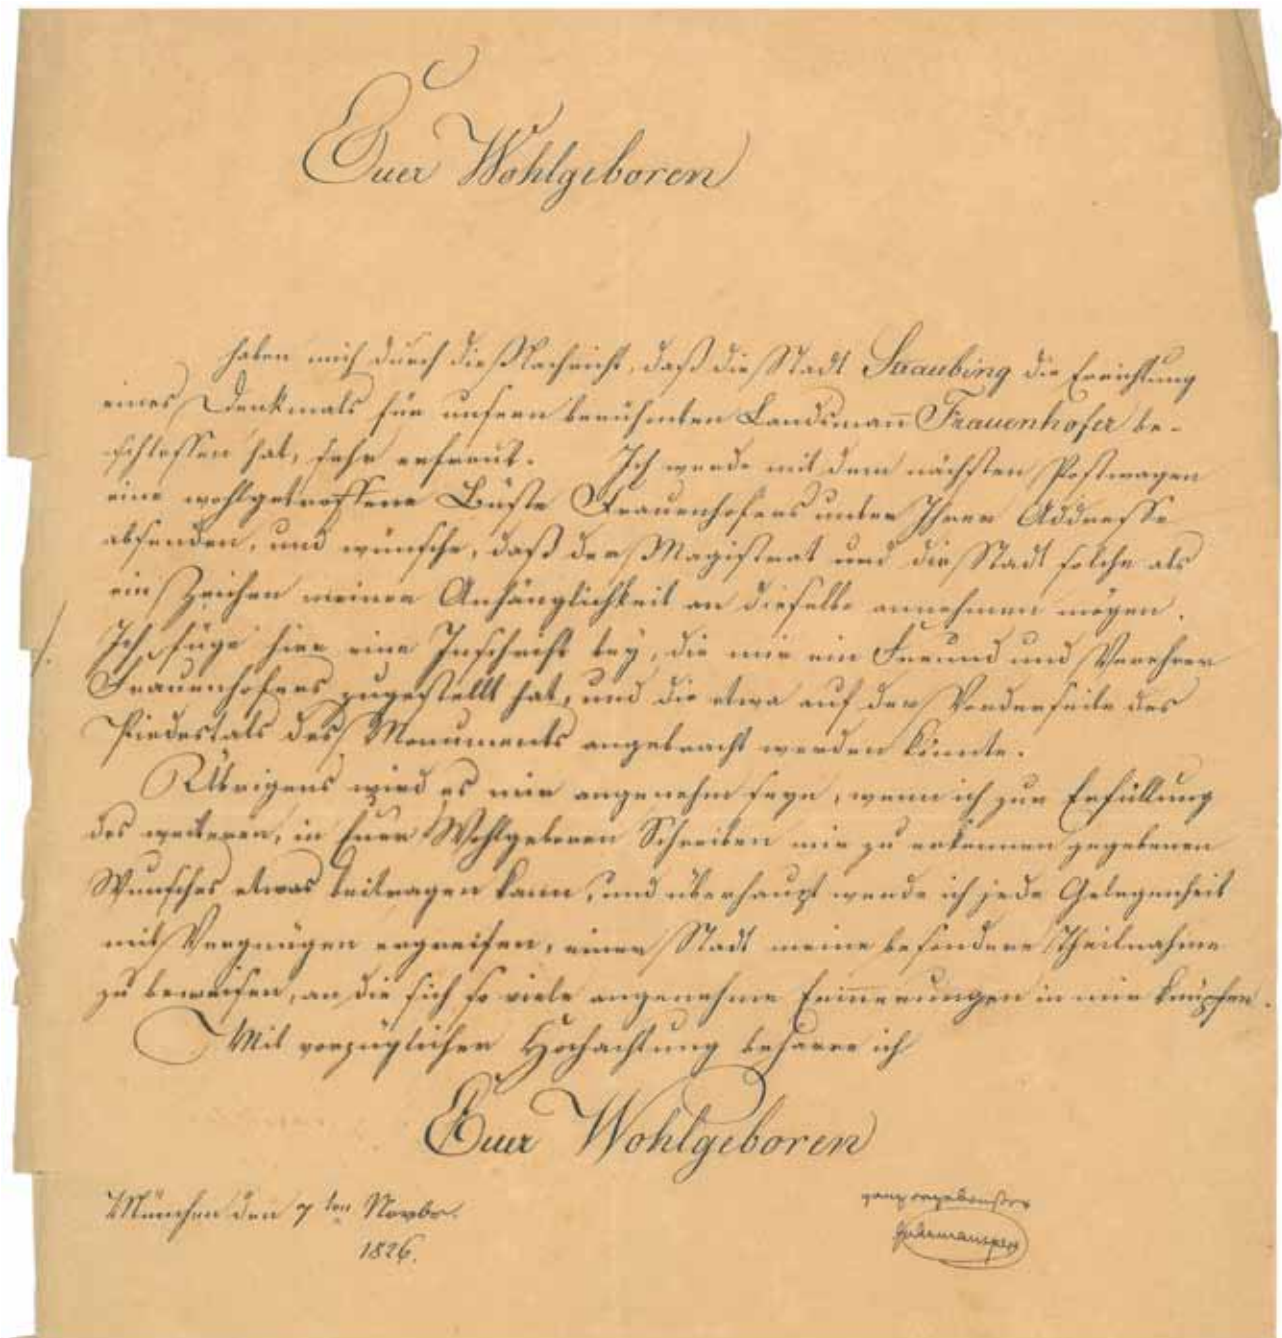 Euer Wohlgeboren
haben mich durch die Nachricht, daß die Stadt Straubing die Errichtung
eines Denkmals für unsern berühmten Landsmann Frauenhofer be-
schlossen hat, sehr erfreut. Ich werde mit dem nächsten Postwagen
eine wohlgetroffene Büste Frauenhofers unter Ihrer Addresse
absenden, und wünsche, daß der Magistrat und die Stadt solche als
ein Zeichen meiner Anhänglichkeit an dieselbe annehmen mögen.
Ich füge hier eine Inschrift bey, die mir ein Freund und Verehrer
Frauenhofers zugestellt hat, und die etwa auf der Vorderseite des
Piedestals des Monuments angebracht werden könnte.
Übrigens wird es mir angenehm seyn, wenn ich zur Erfüllung
des weiteren, in Euer Wohlgeboren Schreiben mir zu erkennen gegebenen
Wunsches etwas beitragen kann, und überhaupt werde ich jede Gelegenheit
mit Vergnügen ergreifen, einer Stadt meine besondere Theilnahme
zu beweisen, an die sich so viele angenehme Erinnerungen in mir knüpfen.
Mit vorzüglicher Hochachtung beharre ich
Euer Wohlgeboren
München den 7ten Novbr.
1826.
ganz ergebenster